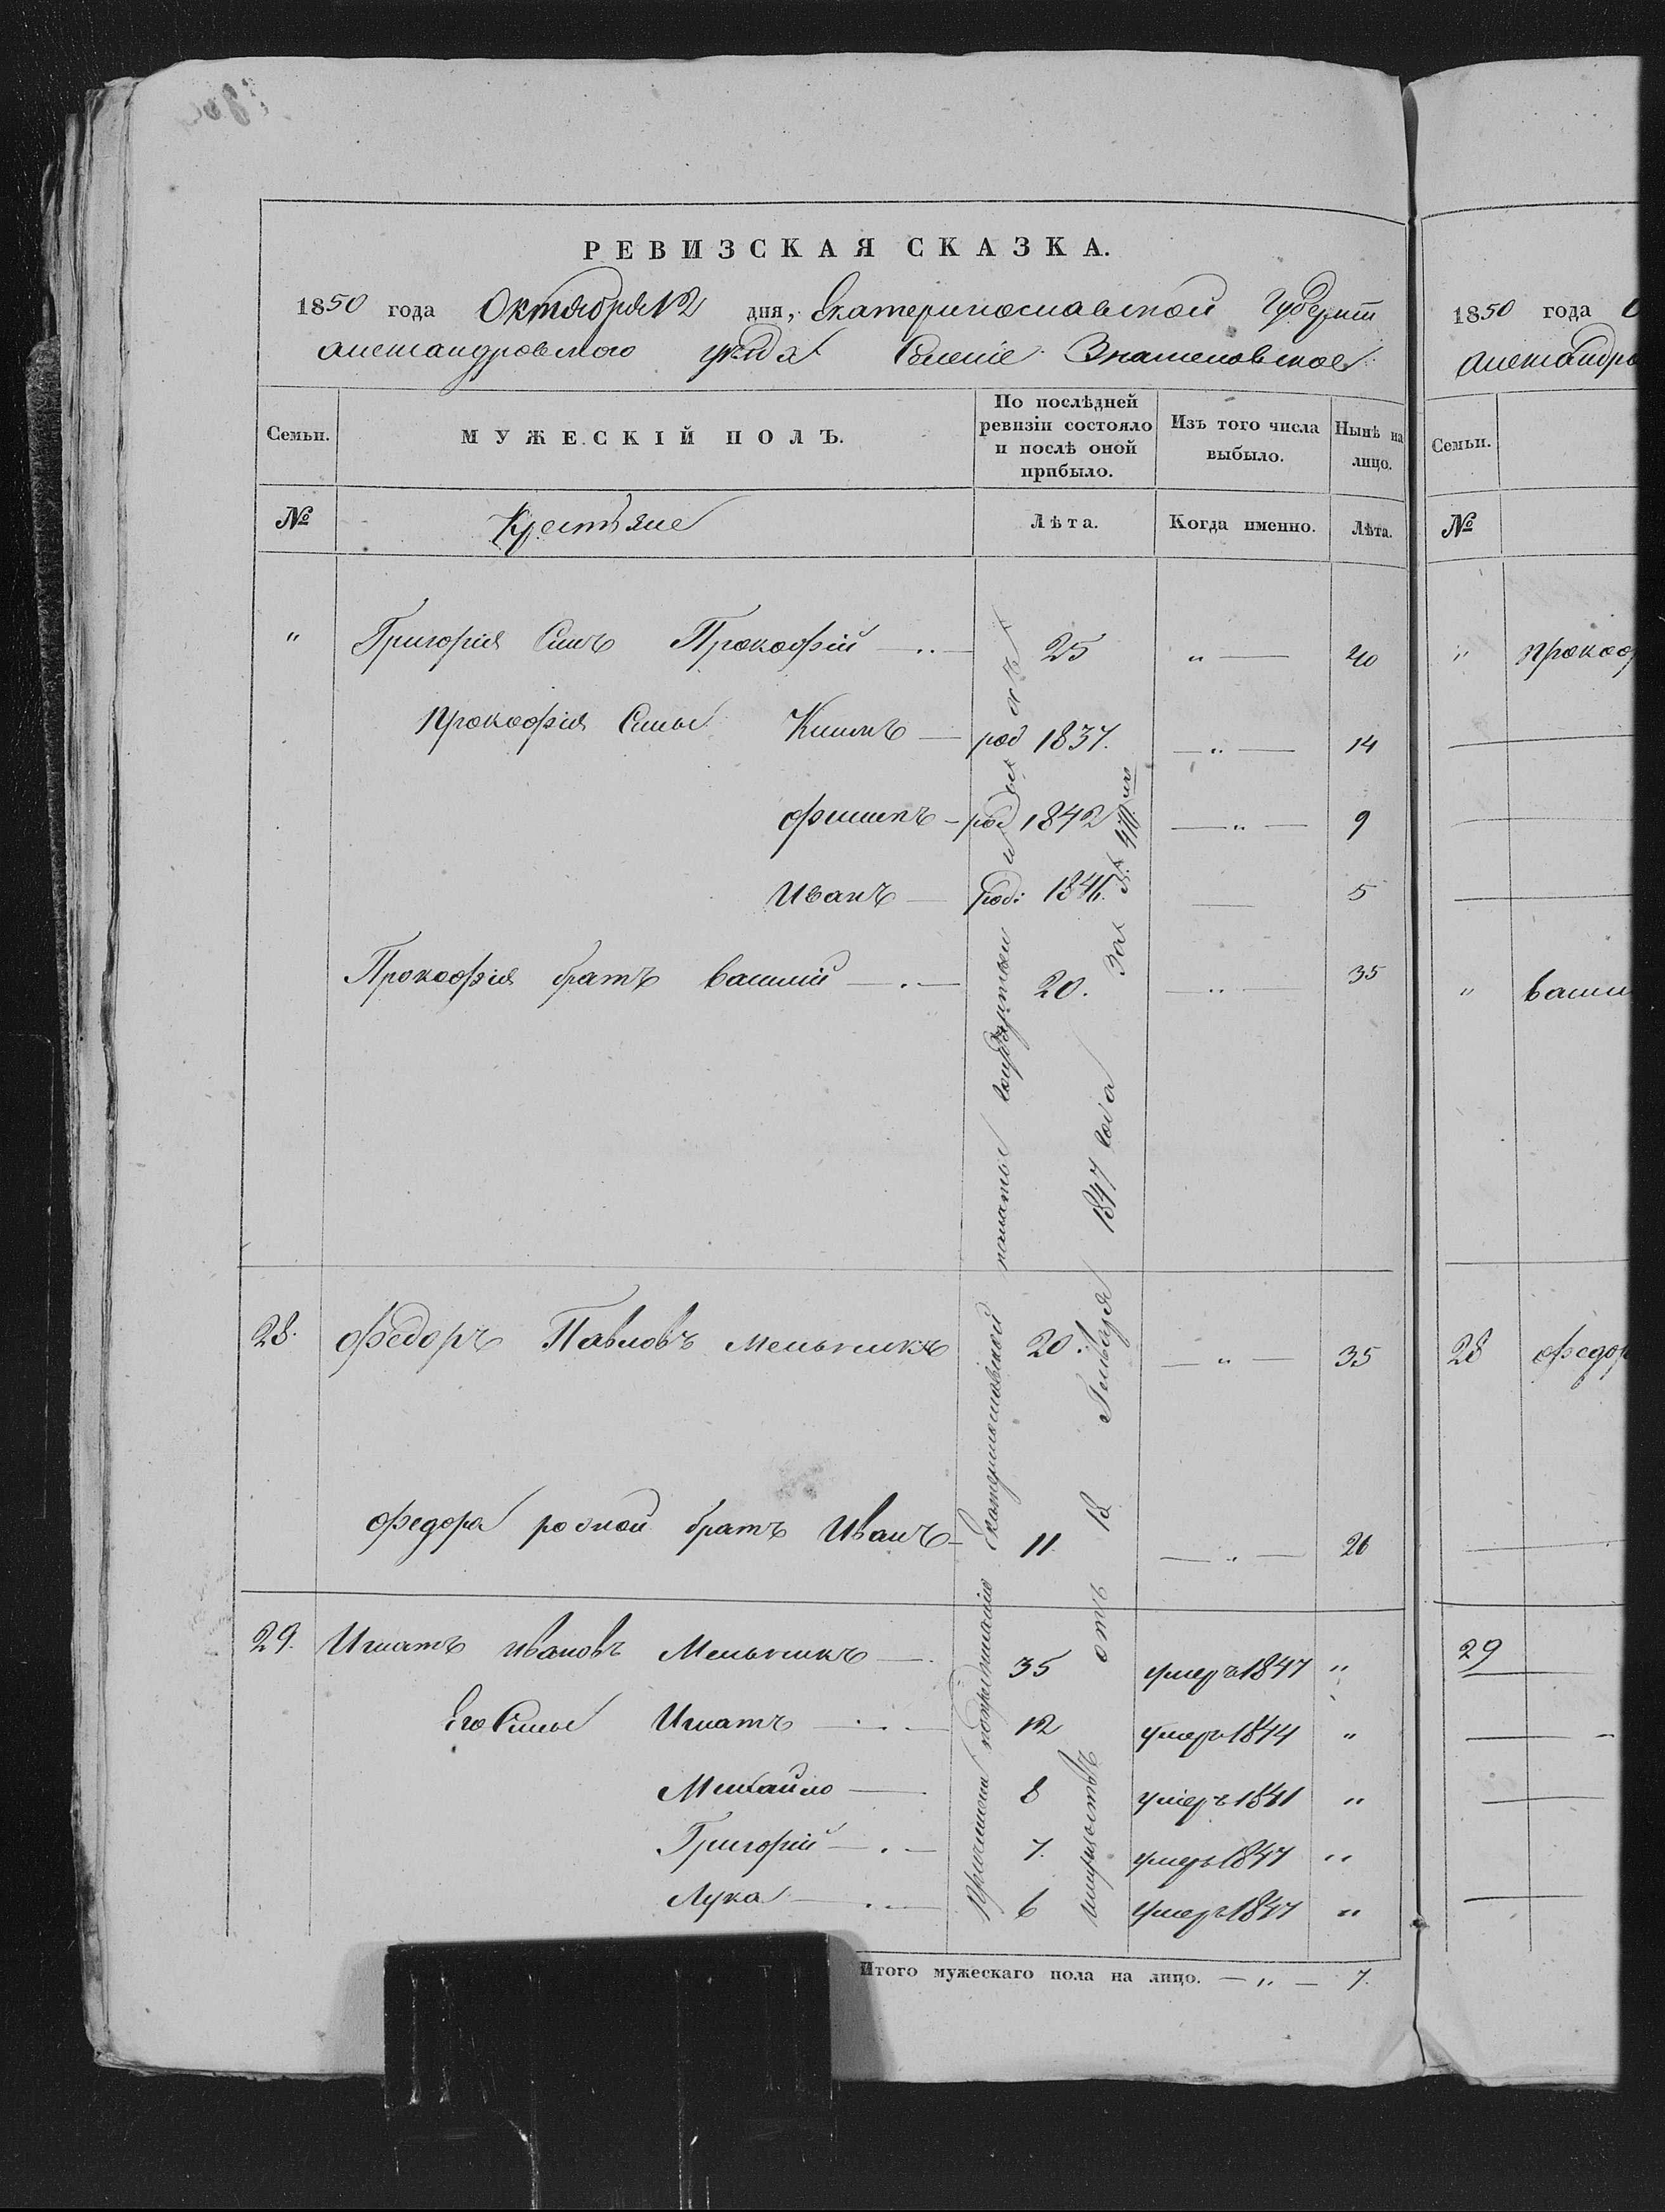 РЕВИЗСКАЯ СКАЗКА.
1850 года Октября 12 дня, Екатеринославской Губерніи
Александровского уѣзда Селеніе Знаменовское
Семьи.
МУЖЕСКІЙ ПОЛЪ.
По послѣдней ревизіи состояло и послѣ оной прибыло.
Изъ того числа выбыло.
Нынѣ на лицо.
№
Крестьяне
Лѣта.
Когда именно.
Лѣта.
" Григорія Сынъ Прокофій 25 " 40
Прокофія Сыны Климъ род 1837. " 14
Филипъ род 1842 " 9
Иванъ род: 1846. 5
Прокофія братъ Василій 20. " 35
28. Федоръ Павловъ Мельникъ 20. " 35
Федора родной братъ Иванъ 11. " 26
29. Игнатъ Ивановъ Мельникъ 35 умеръ 1847 "
Его Сыны Игнатъ 12 умеръ 1844 "
Михайло 8 умеръ 1841 "
Григорій 7. умеръ 1847 "
Лука 6 умеръ 1847 "
Екатеринославской палаты государственныхъ
отъ 12 Генваря 1847 года за №
Итого мужескаго пола на лицо. " 7.
1850 года О
Александро
Семьи.
№
" Прокоф
" Васил
28 Федор
29